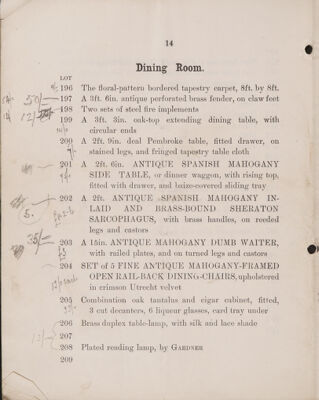 14
Dining Room.
LOT
196 The floral-pattern bordered tapestry carpet, 8ft. by 8ft.
50/- 197 A 3ft. 6in. antique perforated brass fender, on claw feet
198 Two sets of steel fire implements
199 A 3ft. 3in. oak-top extending dining table, with
circular ends
200 A 2ft. 9in. deal Pembroke table, fitted drawer, on
stained legs, and fringed tapestry table cloth
201 A 2ft. 6in. ANTIQUE SPANISH MAHOGANY
SIDE TABLE, or dinner waggon, with rising top,
fitted with drawer, and baize-covered sliding tray
202 A 2ft. ANTIQUE SPANISH MAHOGANY IN-
LAID AND BRASS-BOUND SHERATON
SARCOPHAGUS, with brass handles, on reeded
legs and castors
35/-
203 A 15in. ANTIQUE MAHOGANY DUMB WAITER,
with railed plates, and on turned legs and castors
204 SET of 5 FINE ANTIQUE MAHOGANY-FRAMED
OPEN RAIL-BACK DINING-CHAIRS, upholstered
in crimson Utrecht velvet
205 Combination oak tantalus and cigar cabinet, fitted,
3 cut decanters, 6 liqueur glasses, card tray under
206 Brass duplex table-lamp, with silk and lace shade
207
208 Plated reading lamp, by GARDNER
209